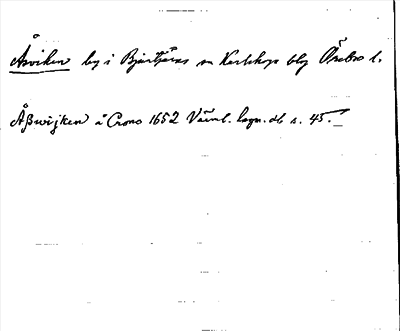 Åsviken by i Bjurtjärns sn Karlskoga blg Örebro l.
Åßwijken å Crono 1652 Värml. lagn. db s. 45.